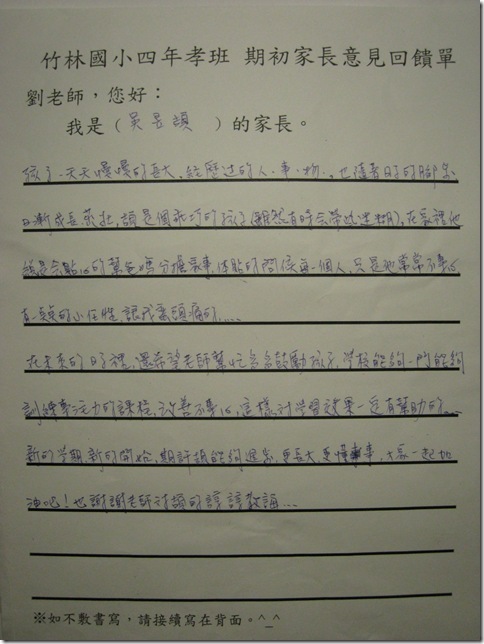 竹林國小四年孝班 期初家長意見回饋單
劉老師，您好：
我是（吳昱頡）的家長。
孩子一天天慢慢的長大，經歷過的人、事、物，也隨著日子的腳步
日漸成長茁壯，頡是個乖巧的孩子（雖然有時會帶點迷糊），在家裡他
總是會貼心的幫爸媽分擔家事，體貼的問候每一個人，只是他常常不專心
的小任性，讓我蠻頭痛的....
在未來的日子裡，還希望老師幫忙多多鼓勵孩子，學校能夠一門能夠
訓練專注力的課程，改善不專心，這樣對學習效果一定有幫助的...
新的學期，新的開始，期許頡能夠進步，更長大，更懂事，大家一起加
油吧！也謝謝老師對頡的諄諄教誨...
※如不敷書寫，請接續寫在背面。^_^